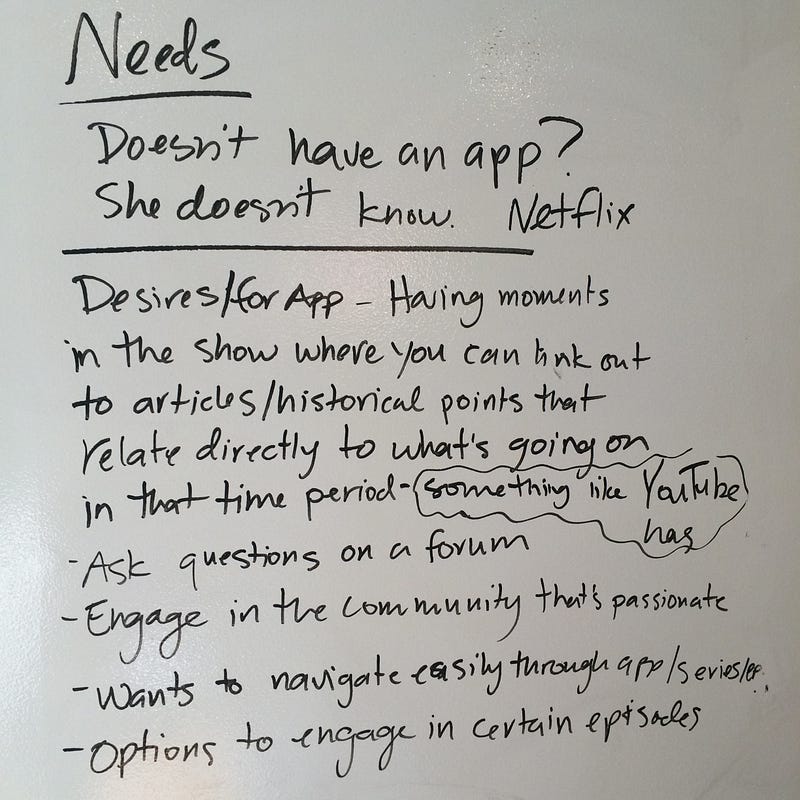 Needs
Doesn't have an app?
She doesn't know. Netflix
Desires/for App - Having moments
in the show where you can link out
to articles/historical points that
relate directly to what's going on
in that time period - something like YouTube
has
- Ask questions on a forum
- Engage in the community that's passionate
- Wants to navigate easily through app/series/ep.
- Options to engage in certain episodes